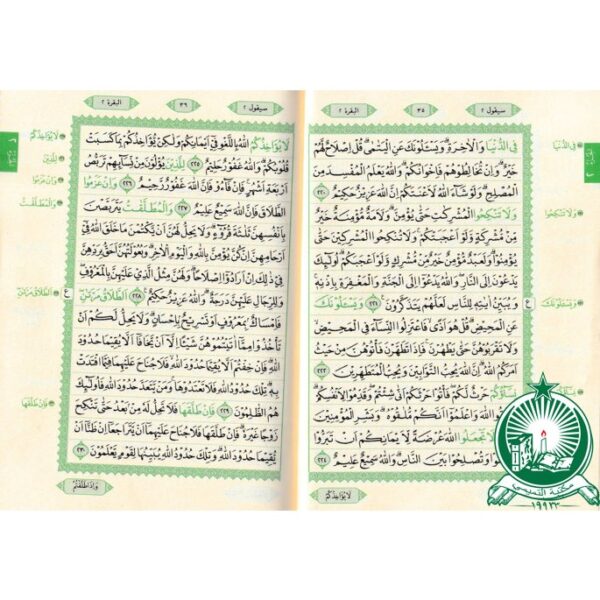 البقرة ٢
٣٥
سيقول ٢
فِى الدُّنْيَا وَالْاٰخِرَةِ وَيَسْـَٔلُوْنَكَ عَنِ الْيَتٰمٰى قُلْ اِصْلَاحٌ لَّهُمْ
خَيْرٌ وَاِنْ تُخَالِطُوْهُمْ فَاِخْوَانُكُمْ وَاللّٰهُ يَعْلَمُ الْمُفْسِدَ مِنَ
الْمُصْلِحِ وَلَوْ شَآءَ اللّٰهُ لَاَعْنَتَكُمْ اِنَّ اللّٰهَ عَزِيْزٌ حَكِيْمٌ ٢٢٠
وَلَا تَنْكِحُوا الْمُشْرِكٰتِ حَتّٰى يُؤْمِنَّ وَلَاَمَةٌ مُّؤْمِنَةٌ خَيْرٌ
مِّنْ مُّشْرِكَةٍ وَّلَوْ اَعْجَبَتْكُمْ وَلَا تُنْكِحُوا الْمُشْرِكِيْنَ حَتّٰى
يُؤْمِنُوْا وَلَعَبْدٌ مُّؤْمِنٌ خَيْرٌ مِّنْ مُّشْرِكٍ وَّلَوْ اَعْجَبَكُمْ اُولٰٓئِكَ
يَدْعُوْنَ اِلَى النَّارِ وَاللّٰهُ يَدْعُوْٓا اِلَى الْجَنَّةِ وَالْمَغْفِرَةِ بِاِذْنِهٖ
وَيُبَيِّنُ اٰيٰتِهٖ لِلنَّاسِ لَعَلَّهُمْ يَتَذَكَّرُوْنَ ٢٢١ وَيَسْـَٔلُوْنَكَ
عَنِ الْمَحِيْضِ قُلْ هُوَ اَذًى فَاعْتَزِلُوا النِّسَآءَ فِى الْمَحِيْضِ
وَلَا تَقْرَبُوْهُنَّ حَتّٰى يَطْهُرْنَ فَاِذَا تَطَهَّرْنَ فَاْتُوْهُنَّ مِنْ حَيْثُ
اَمَرَكُمُ اللّٰهُ اِنَّ اللّٰهَ يُحِبُّ التَّوَّابِيْنَ وَيُحِبُّ الْمُتَطَهِّرِيْنَ ٢٢٢
نِسَآؤُكُمْ حَرْثٌ لَّكُمْ فَاْتُوْا حَرْثَكُمْ اَنّٰى شِئْتُمْ وَقَدِّمُوْا لِاَنْفُسِكُمْ
وَاتَّقُوا اللّٰهَ وَاعْلَمُوْٓا اَنَّكُمْ مُّلٰقُوْهُ وَبَشِّرِ الْمُؤْمِنِيْنَ
تَجْعَلُوا اللّٰهَ عُرْضَةً لِّاَيْمَانِكُمْ اَنْ تَبَرُّوْا
وَتُصْلِحُوْا بَيْنَ النَّاسِ وَاللّٰهُ سَمِيْعٌ عَلِيْمٌ ٢٢٤
لَا يُؤَاخِذُكُمُ
فِى الدُّنْيَا
وَلَا تَنْكِحُوا
وَيَسْـَٔلُوْنَكَ
نِسَآؤُكُمْ
ع
البقرة ٢
٣٦
سيقول ٢
لَا يُؤَاخِذُكُمُ اللّٰهُ بِاللَّغْوِ فِيْٓ اَيْمَانِكُمْ وَلٰكِنْ يُّؤَاخِذُكُمْ بِمَا كَسَبَتْ
قُلُوْبُكُمْ وَاللّٰهُ غَفُوْرٌ حَلِيْمٌ ٢٢٥ لِلَّذِيْنَ يُؤْلُوْنَ مِنْ نِّسَآئِهِمْ تَرَبُّصُ
اَرْبَعَةِ اَشْهُرٍ فَاِنْ فَآءُوْ فَاِنَّ اللّٰهَ غَفُوْرٌ رَّحِيْمٌ ٢٢٦ وَاِنْ عَزَمُوا
الطَّلَاقَ فَاِنَّ اللّٰهَ سَمِيْعٌ عَلِيْمٌ ٢٢٧ وَالْمُطَلَّقٰتُ يَتَرَبَّصْنَ
بِاَنْفُسِهِنَّ ثَلٰثَةَ قُرُوْٓءٍ وَلَا يَحِلُّ لَهُنَّ اَنْ يَّكْتُمْنَ مَا خَلَقَ اللّٰهُ فِيْٓ
اَرْحَامِهِنَّ اِنْ كُنَّ يُؤْمِنَّ بِاللّٰهِ وَالْيَوْمِ الْاٰخِرِ وَبُعُوْلَتُهُنَّ اَحَقُّ بِرَدِّهِنَّ
فِيْ ذٰلِكَ اِنْ اَرَادُوْٓا اِصْلَاحًا وَلَهُنَّ مِثْلُ الَّذِيْ عَلَيْهِنَّ بِالْمَعْرُوْفِ
وَلِلرِّجَالِ عَلَيْهِنَّ دَرَجَةٌ وَاللّٰهُ عَزِيْزٌ حَكِيْمٌ ٢٢٨ اَلطَّلَاقُ مَرَّتٰنِ
فَاِمْسَاكٌ بِمَعْرُوْفٍ اَوْ تَسْرِيْحٌ بِاِحْسَانٍ وَلَا يَحِلُّ لَكُمْ اَنْ
تَاْخُذُوْا مِمَّآ اٰتَيْتُمُوْهُنَّ شَيْـًٔا اِلَّآ اَنْ يَّخَافَآ اَلَّا يُقِيْمَا حُدُوْدَ
اللّٰهِ فَاِنْ خِفْتُمْ اَلَّا يُقِيْمَا حُدُوْدَ اللّٰهِ فَلَا جُنَاحَ عَلَيْهِمَا فِيْمَا افْتَدَتْ
بِهٖ تِلْكَ حُدُوْدُ اللّٰهِ فَلَا تَعْتَدُوْهَا وَمَنْ يَّتَعَدَّ حُدُوْدَ اللّٰهِ فَاُولٰٓئِكَ
هُمُ الظّٰلِمُوْنَ ٢٢٩ فَاِنْ طَلَّقَهَا فَلَا تَحِلُّ لَهٗ مِنْ بَعْدُ حَتّٰى تَنْكِحَ
زَوْجًا غَيْرَهٗ فَاِنْ طَلَّقَهَا فَلَا جُنَاحَ عَلَيْهِمَآ اَنْ يَّتَرَاجَعَآ اِنْ ظَنَّآ اَنْ
يُّقِيْمَا حُدُوْدَ اللّٰهِ وَتِلْكَ حُدُوْدُ اللّٰهِ يُبَيِّنُهَا لِقَوْمٍ يَّعْلَمُوْنَ ٢٣٠
وَاِذَا طَلَّقْتُمُ
لَا يُؤَاخِذُكُمُ
لِلَّذِيْنَ
وَاِنْ عَزَمُوا
وَالْمُطَلَّقٰتُ
اَلطَّلَاقُ مَرَّتٰنِ
فَاِنْ طَلَّقَهَا
ع
مكتبة النفيسي
١٩٩٣